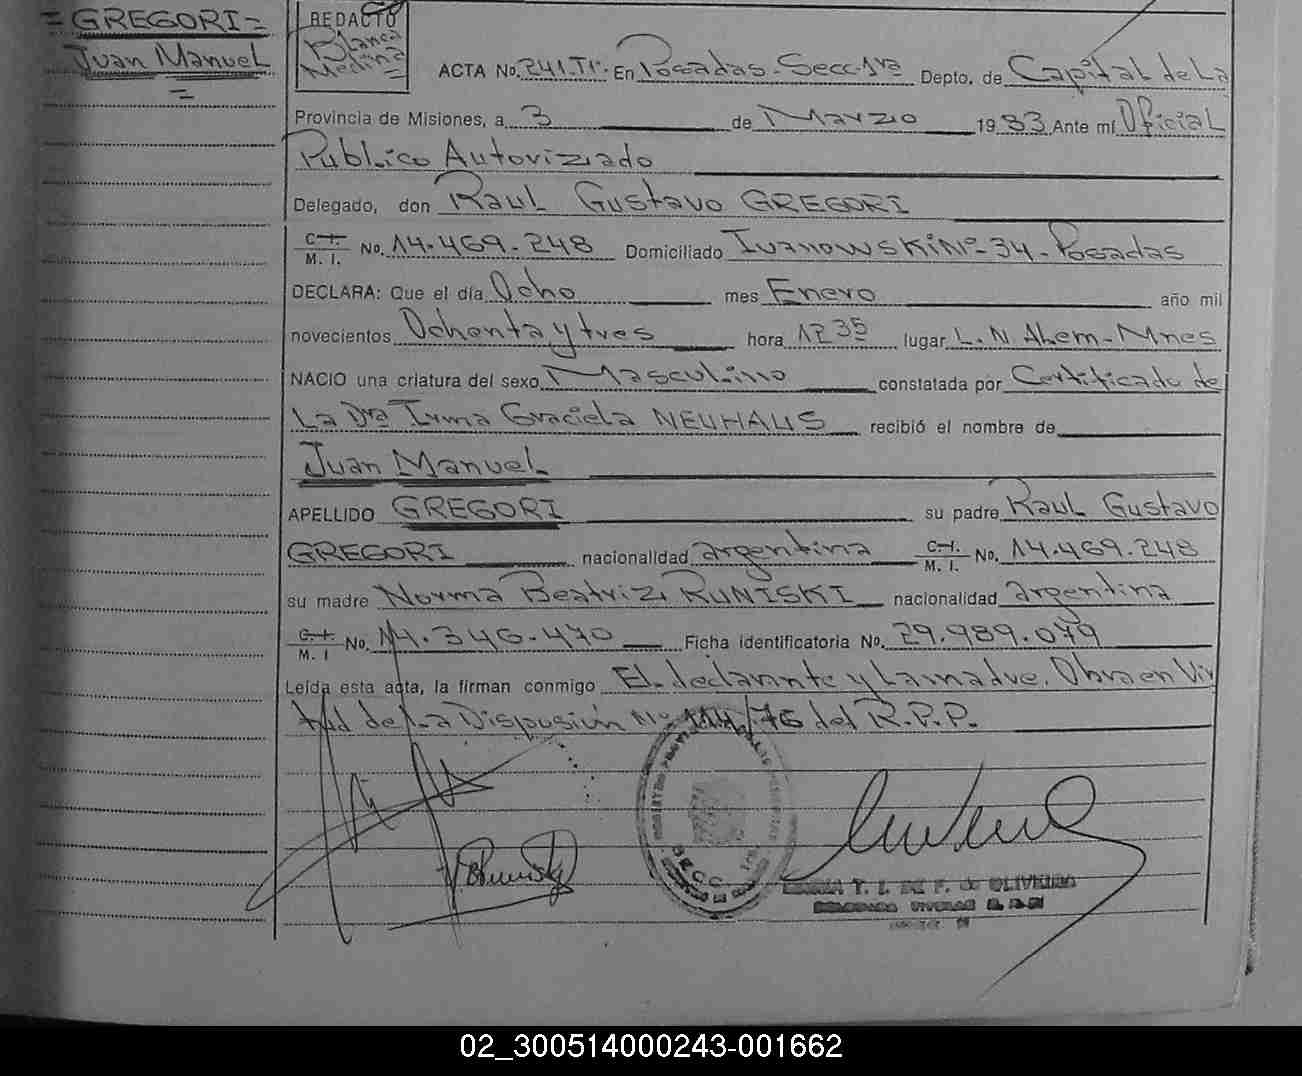 = GREGORI =
Juan Manuel
=
REDACTO
Blanca
Medina
ACTA No. 241.Tº. En Posadas-Secc-1ra Depto. de Capital de La
Provincia de Misiones, a 3 de Marzo 1983 Ante mí Oficial
Publico Autorizado
Delegado, don Raul Gustavo GREGORI
C. I.
M. I. No. 14.469.248 Domiciliado Ivanowski Nº-34-Posadas
DECLARA: Que el día Ocho mes Enero año mil
novecientos Ochenta y tres hora 12 35 lugar L. N. Alem-Mnes
NACIO una criatura del sexo Masculino constatada por Certificado de
La Dra Irma Graciela NEUHAUS recibió el nombre de
Juan Manuel
APELLIDO GREGORI su padre Raul Gustavo
GREGORI nacionalidad argentina C. I.
M. I. No. 14.469.248
su madre Norma Beatriz RUNISKI nacionalidad argentina
C. I.
M. I No. 14.346.470 Ficha identificatoria No. 29.989.079
Leída esta acta, la firman conmigo El declarante y La madre. Obra en Vir
tud de La Disposición Nº 114/76 del R.P.P.
SECC.
T. I. DE F. de OLIVEIRA
02_300514000243-001662